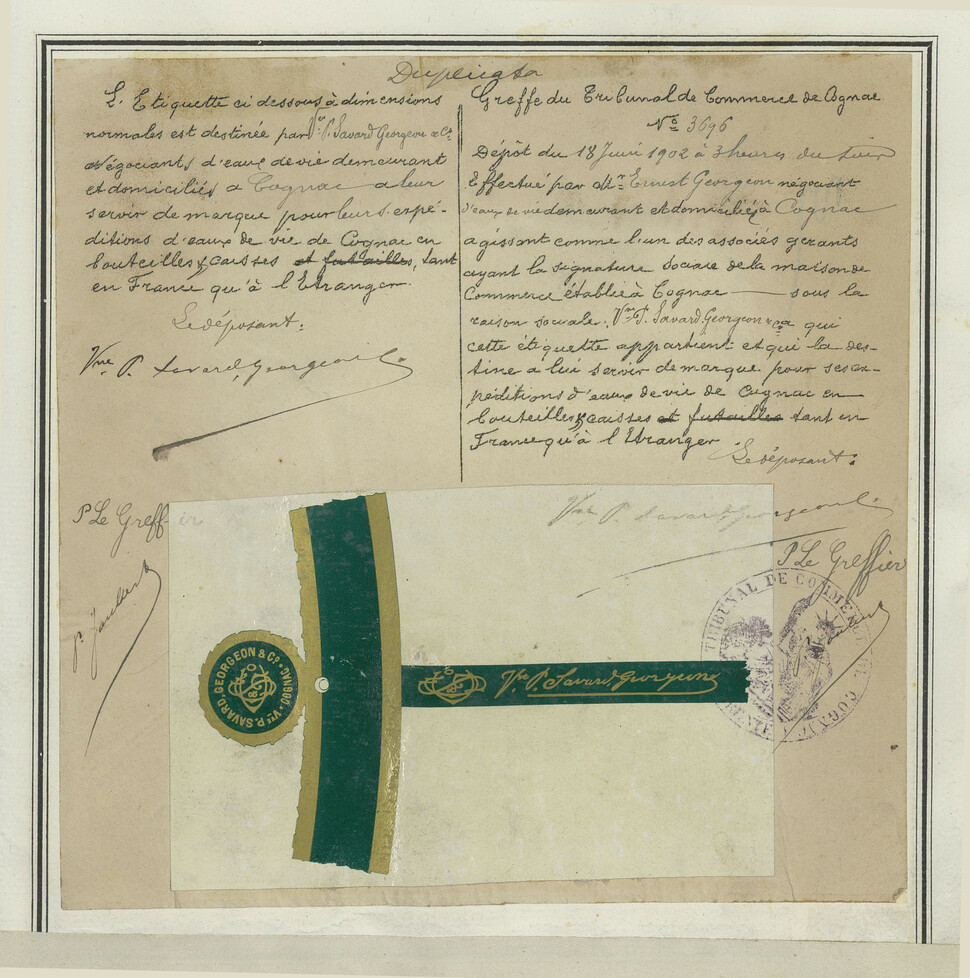 Duplicata
L'Etiquette ci dessous à dimensions
normales est destinée par Vve P. Savard Georgeon & Cie
Négociants d'eaux de vie demeurant
et domiciliés a Cognac a leur
servir de marque pour leurs expé-
ditions d'eaux de vie de Cognac en
bouteilles & caisses et futailles, tant
en France qu'à l'Etranger.
Le déposant:
Vve P. Savard, Georgeon & Co
P Le Greffier
Greffe du Tribunal de Commerce de Cognac
No 3696
Dépôt du 18 Juin 1902 à 3 heures du soir
Effectué par Mr Ernest Georgeon négociant
d'eaux de vie demeurant et domicilié à Cognac
agissant comme l'un des associés gerants
ayant la signature sociale de la maison de
Commerce établie à Cognac — sous la
raison sociale, Vve P. Savard Georgeon & Ca qui
cette étiquette appartient et qui la des-
tine a lui servir de marque pour ses ex-
péditions d'eaux de vie de Cognac en
bouteilles & caisses et futailles tant en
France qu'à l'Etranger
Le déposant:
Vve P. Savard, Georgeon & Co
P Le Greffier
TRIBUNAL DE COMMERCE
COGNAC
Vve P. SAVARD, GEORGEON & Co. COGNAC
Vve P. Savard, Georgeon